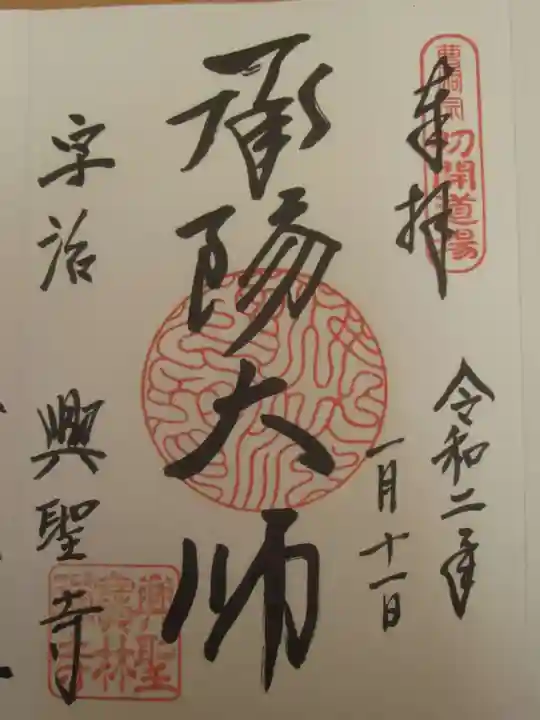 奉拝
曹洞宗 初開道場
令和二年
一月十一日
承陽大師
宇治 興聖寺